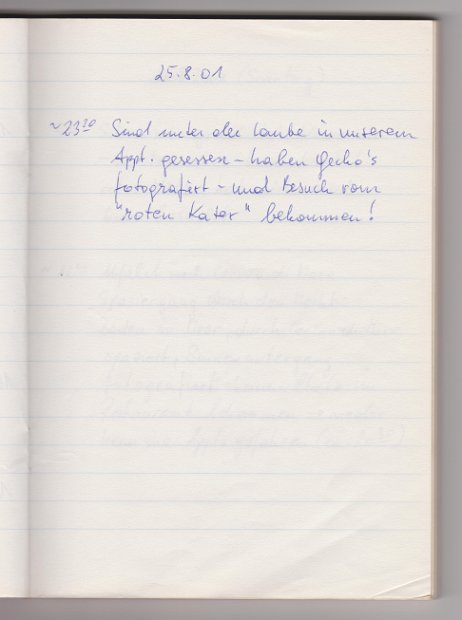 25.8.01
~2330 Sind unter der Laube in unserem
Appt. gesessen – haben Gecko's
fotografiert – und Besuch vom
"roten Kater" bekommen!